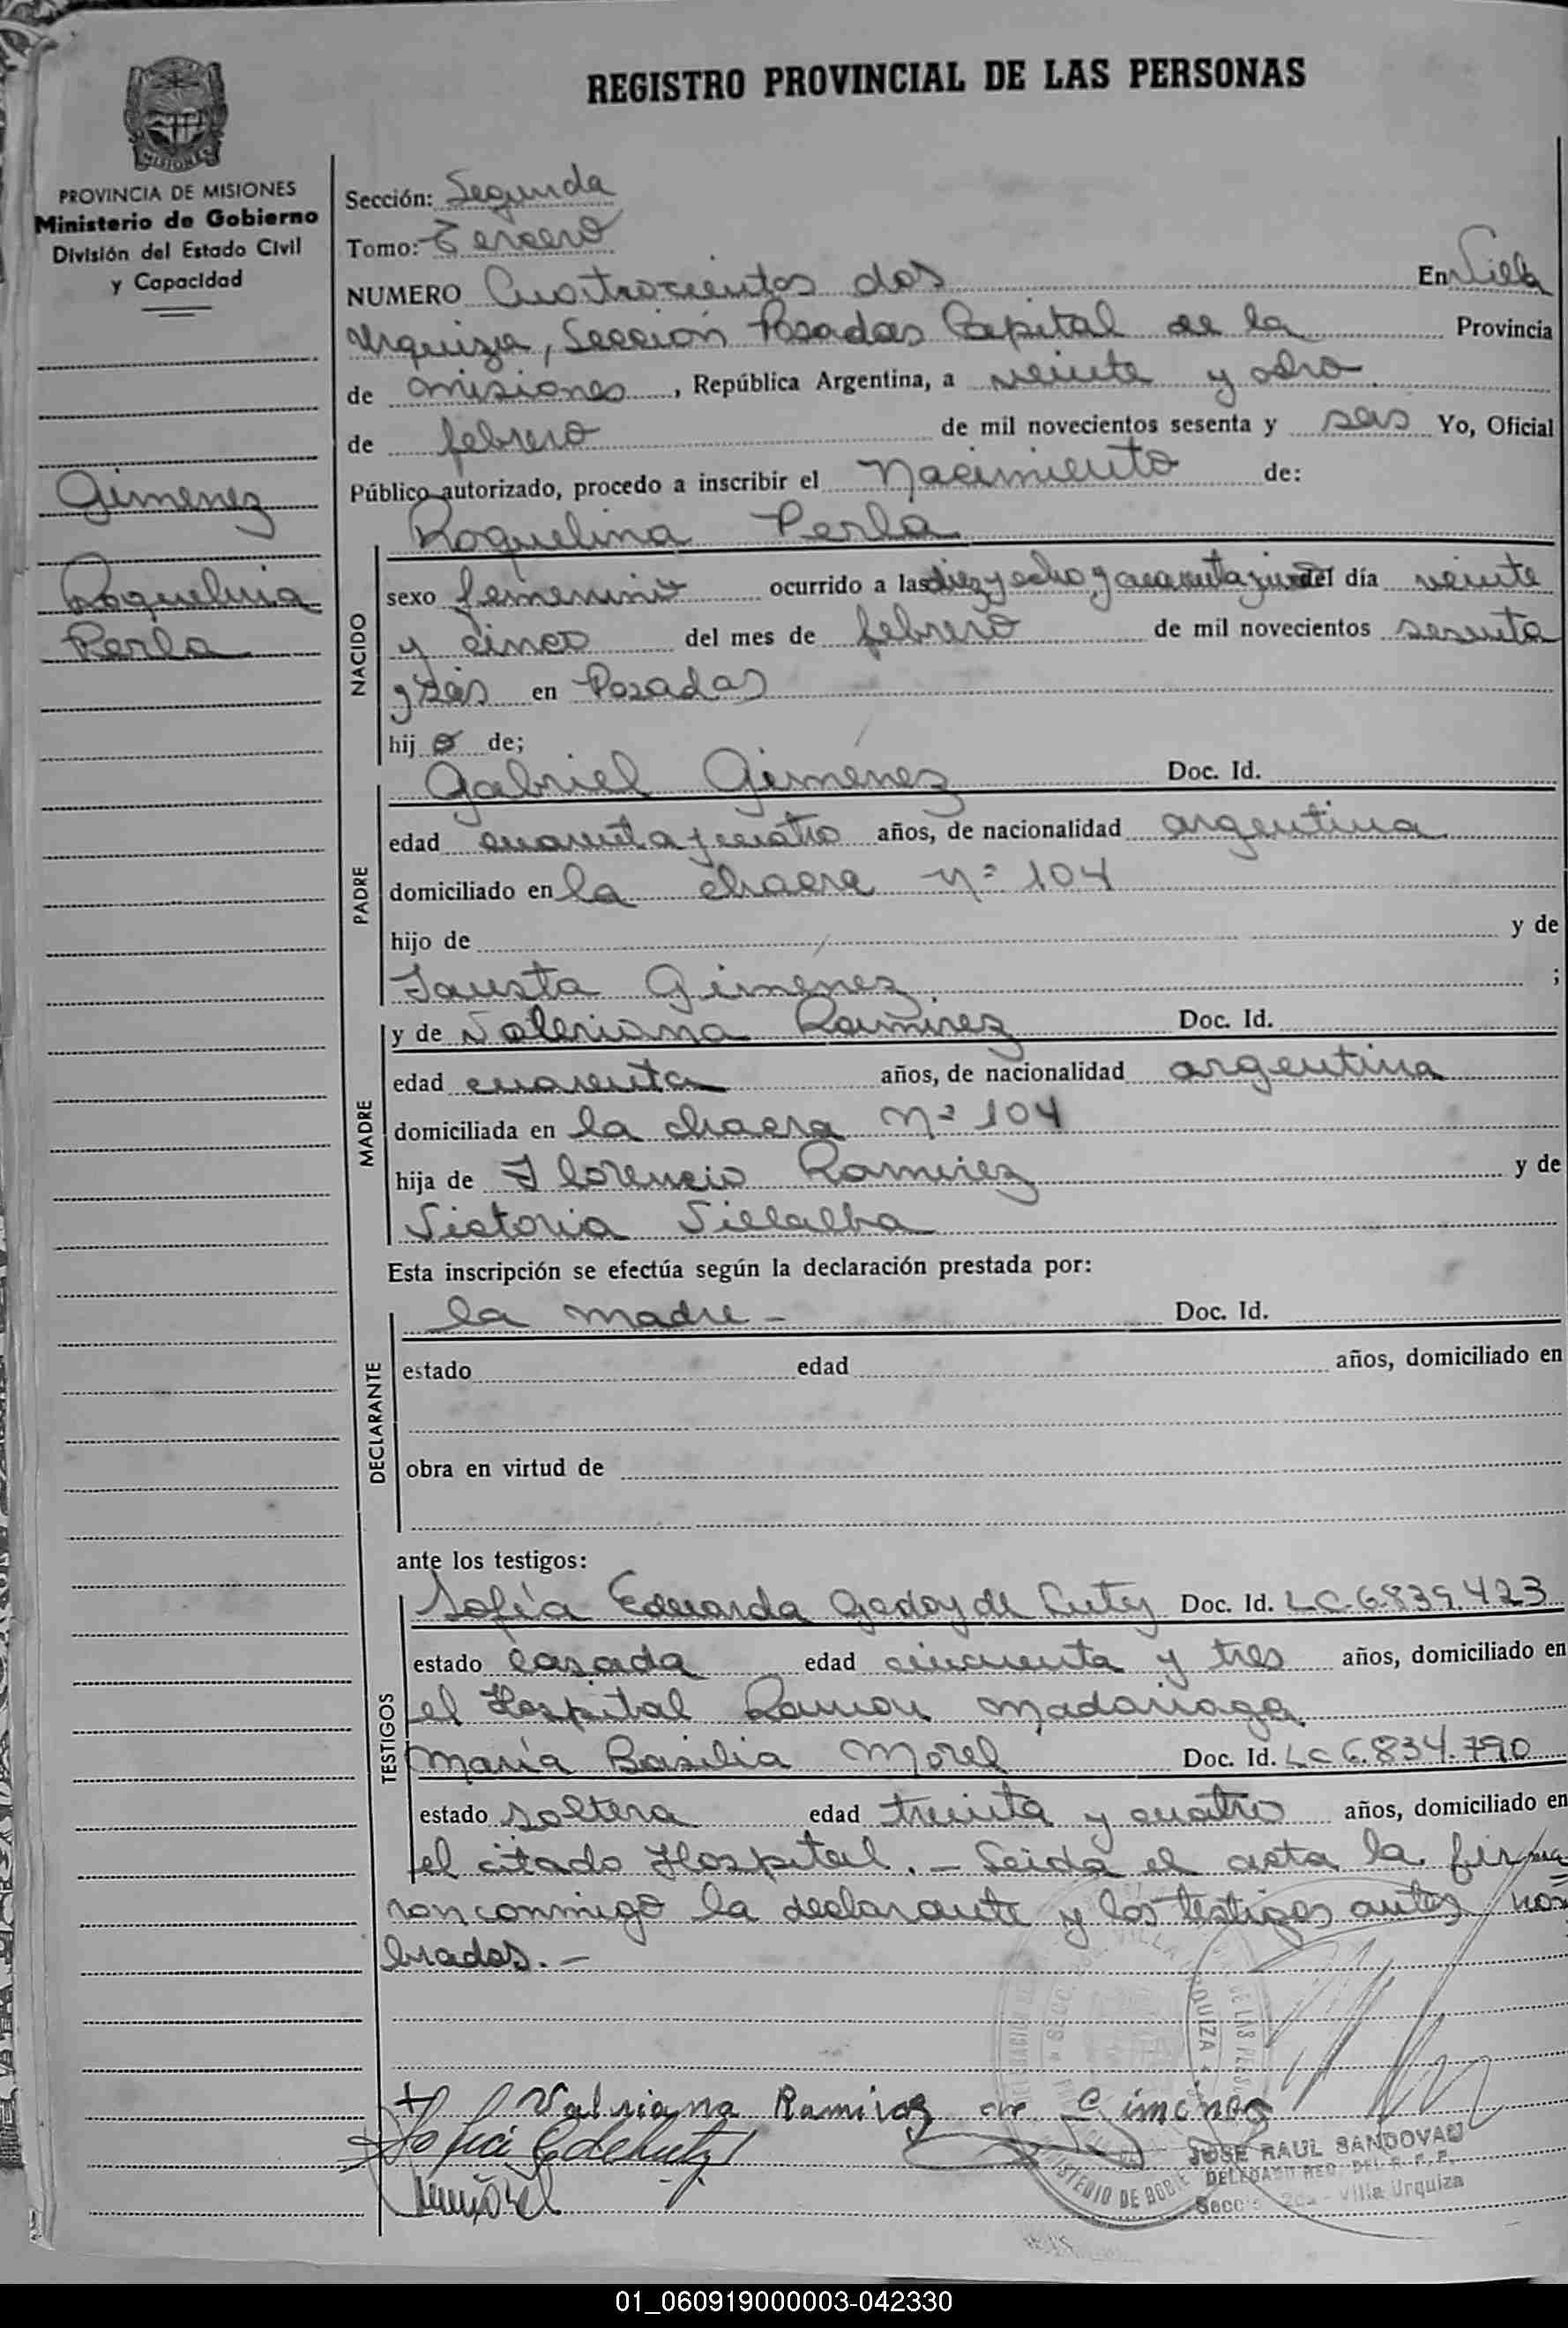 REGISTRO PROVINCIAL DE LAS PERSONAS
MISIONES
PROVINCIA DE MISIONES
Ministerio de Gobierno
División del Estado Civil
y Capacidad
Gimenez
Roquelina
Perla
Sección: Segunda
Tomo: Tercero
NUMERO Cuatrocientos dos En Villa
Urquiza, Sección Posadas Capital de la Provincia
de Misiones, República Argentina, a veinte y ocho
de febrero de mil novecientos sesenta y seis Yo, Oficial
Público autorizado, procedo a inscribir el Nacimiento de:
Roquelina Perla
NACIDO
sexo femenino ocurrido a las diez y ocho y cuarenta y cinco del día veinte
y cinco del mes de febrero de mil novecientos sesenta
y seis en Posadas
hij a de;
PADRE
Gabriel Gimenez Doc. Id.
edad cuarenta y cuatro años, de nacionalidad argentina
domiciliado en la chacra Nº 104
hijo de y de
Fausta Gimenez ;
MADRE
y de Valeriana Ramirez Doc. Id.
edad cuarenta años, de nacionalidad argentina
domiciliada en la chacra Nº 104
hija de Florencio Ramirez y de
Victoria Villalba
Esta inscripción se efectúa según la declaración prestada por:
DECLARANTE
la madre - Doc. Id.
estado edad años, domiciliado en
obra en virtud de
ante los testigos:
TESTIGOS
Sofía Eduarda Godoy de Doc. Id. LC 6.839.423
estado casada edad cincuenta y tres años, domiciliado en
el Hospital Ramon Madariaga
María Basilia Morel Doc. Id. LC 6.834.790
estado soltera edad treinta y cuatro años, domiciliado en
el citado Hospital. - Leida el acta la firma
ron conmigo la declarante y los testigos antes nom
brados. -
Valriana Ramirez de Gimenes
JOSE RAUL SANDOVAL
DELEGADO REG. DEL R. P. P.
Secc. 2da - Villa Urquiza
01_060919000003-042330